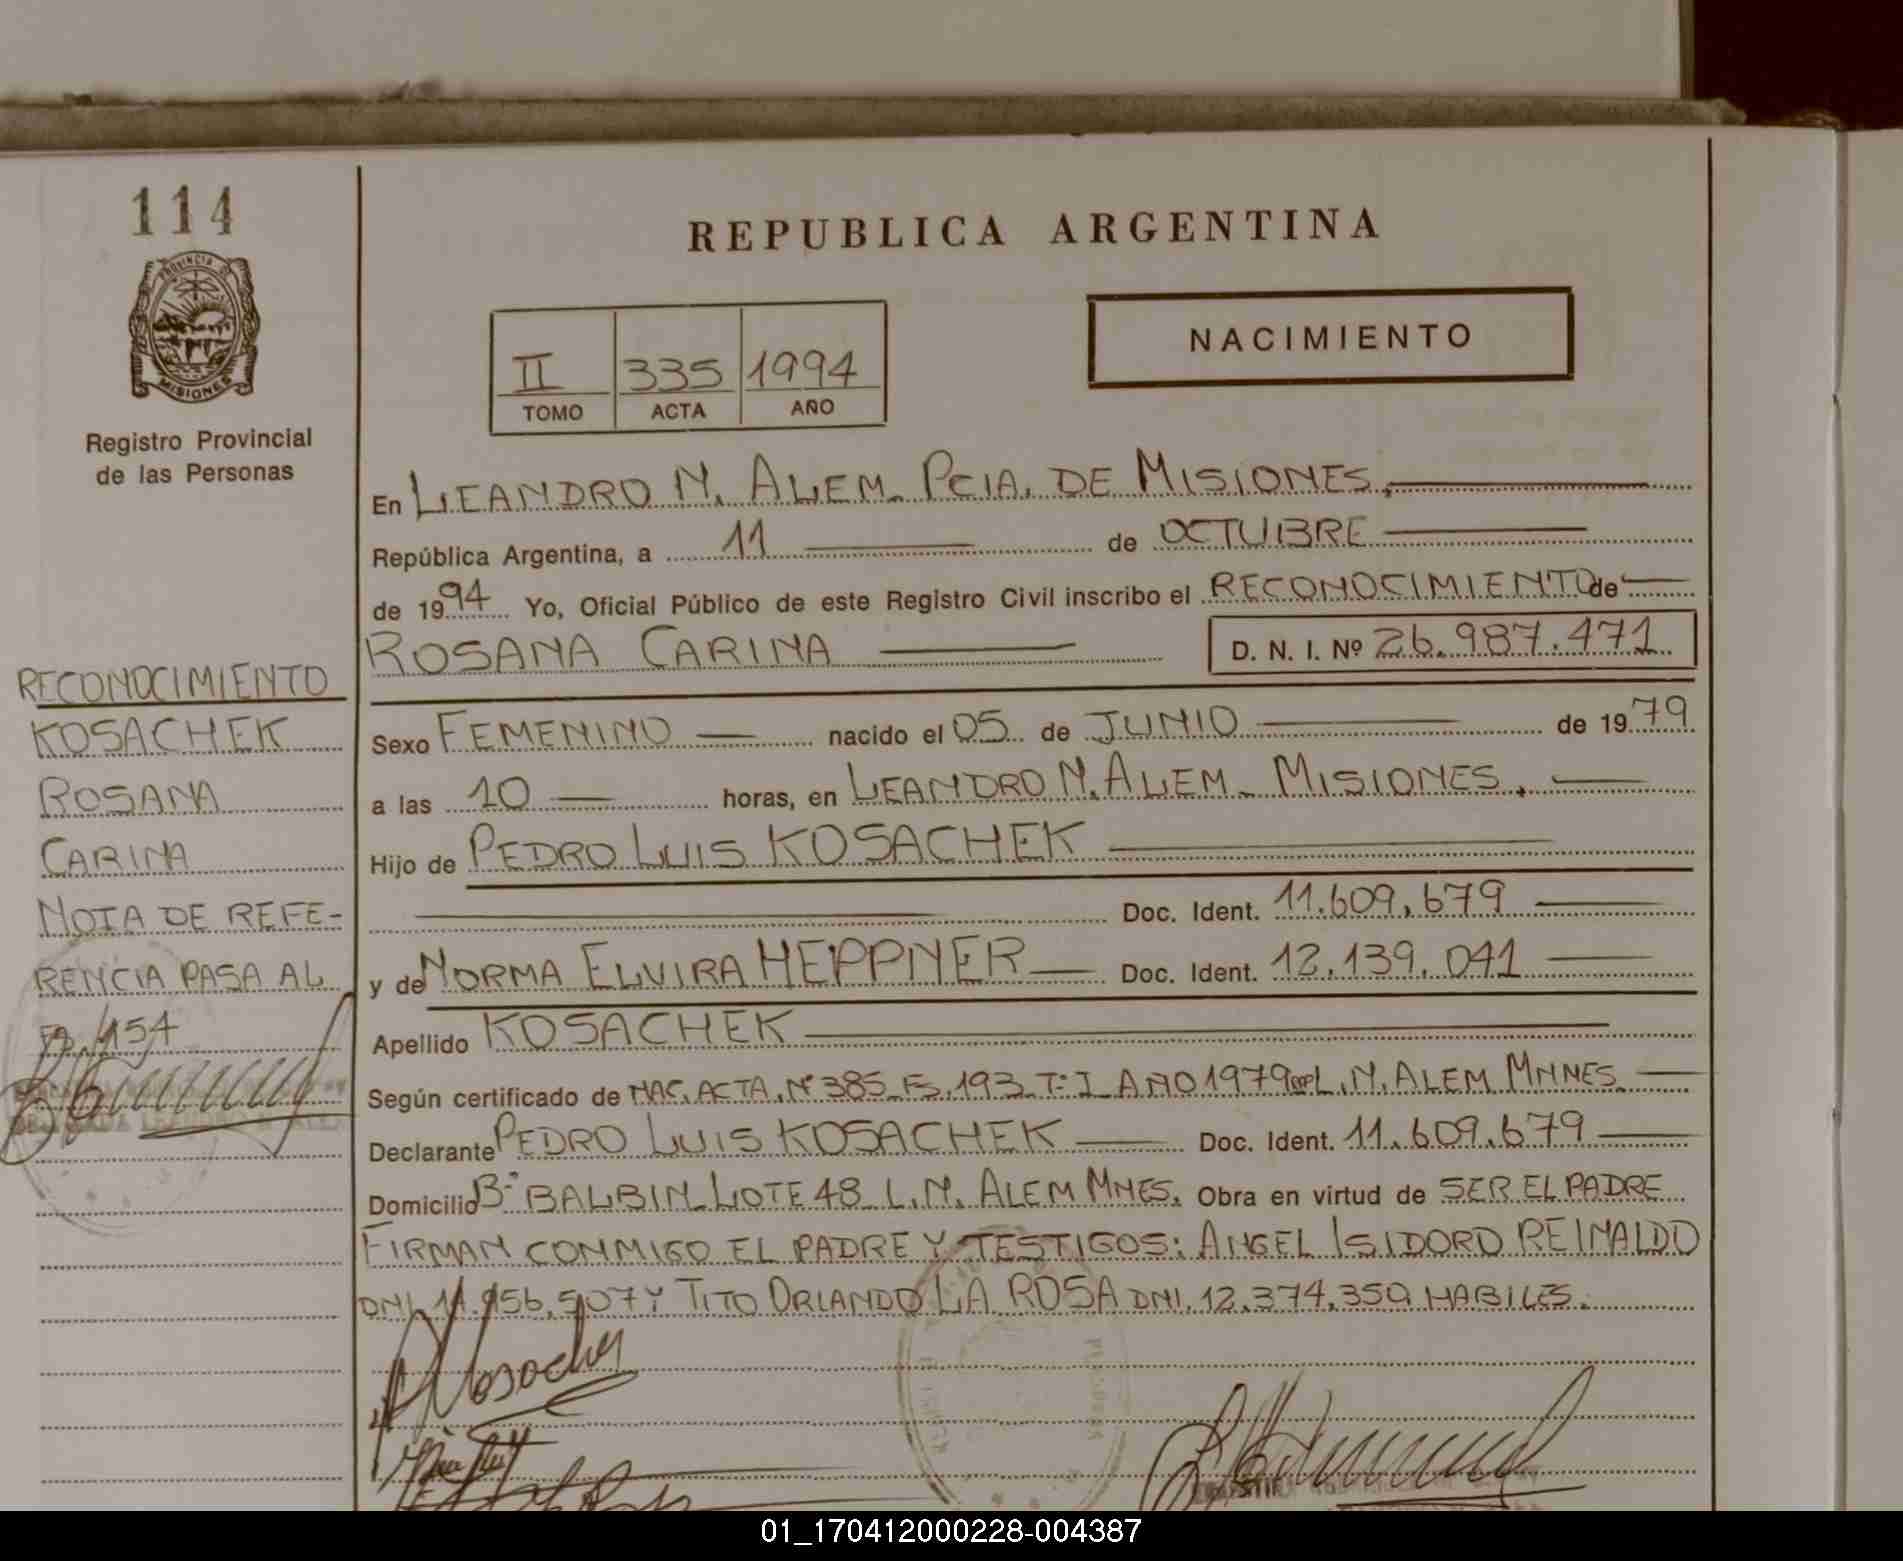 114
PROVINCIA DE
MISIONES
Registro Provincial
de las Personas
RECONOCIMIENTO
KOSACHEK
ROSANA
CARINA
NOTA DE REFE-
RENCIA PASA AL
154
REPUBLICA ARGENTINA
NACIMIENTO
II 335 1994
TOMO ACTA AÑO
En LEANDRO N. ALEM. PCIA. DE MISIONES.
República Argentina, a 11 de OCTUBRE
de 1994 Yo, Oficial Público de este Registro Civil inscribo el RECONOCIMIENTO de
ROSANA CARINA D. N. I. Nº 26.987.471
Sexo FEMENINO nacido el 05 de JUNIO de 1979
a las 10 horas, en LEANDRO N. ALEM. MISIONES.
Hijo de PEDRO LUIS KOSACHEK
Doc. Ident. 11.609.679
y de NORMA ELVIRA HEPPNER Doc. Ident. 12.139.041
Apellido KOSACHEK
Según certificado de NAC. ACTA. Nº 385 Fs. 193 Tº I AÑO 1979 L. N. ALEM MNNES.
Declarante PEDRO LUIS KOSACHEK Doc. Ident. 11.609.679
Domicilio Bº BALBIN LOTE 48 L. N. ALEM MNES. Obra en virtud de SER EL PADRE
FIRMAN CONMIGO EL PADRE Y TESTIGOS: ANGEL ISIDORO REINALDO
DNI. 11.956.507 Y TITO ORLANDO LA ROSA DNI. 12.374.359 HABILES.
01_170412000228-004387